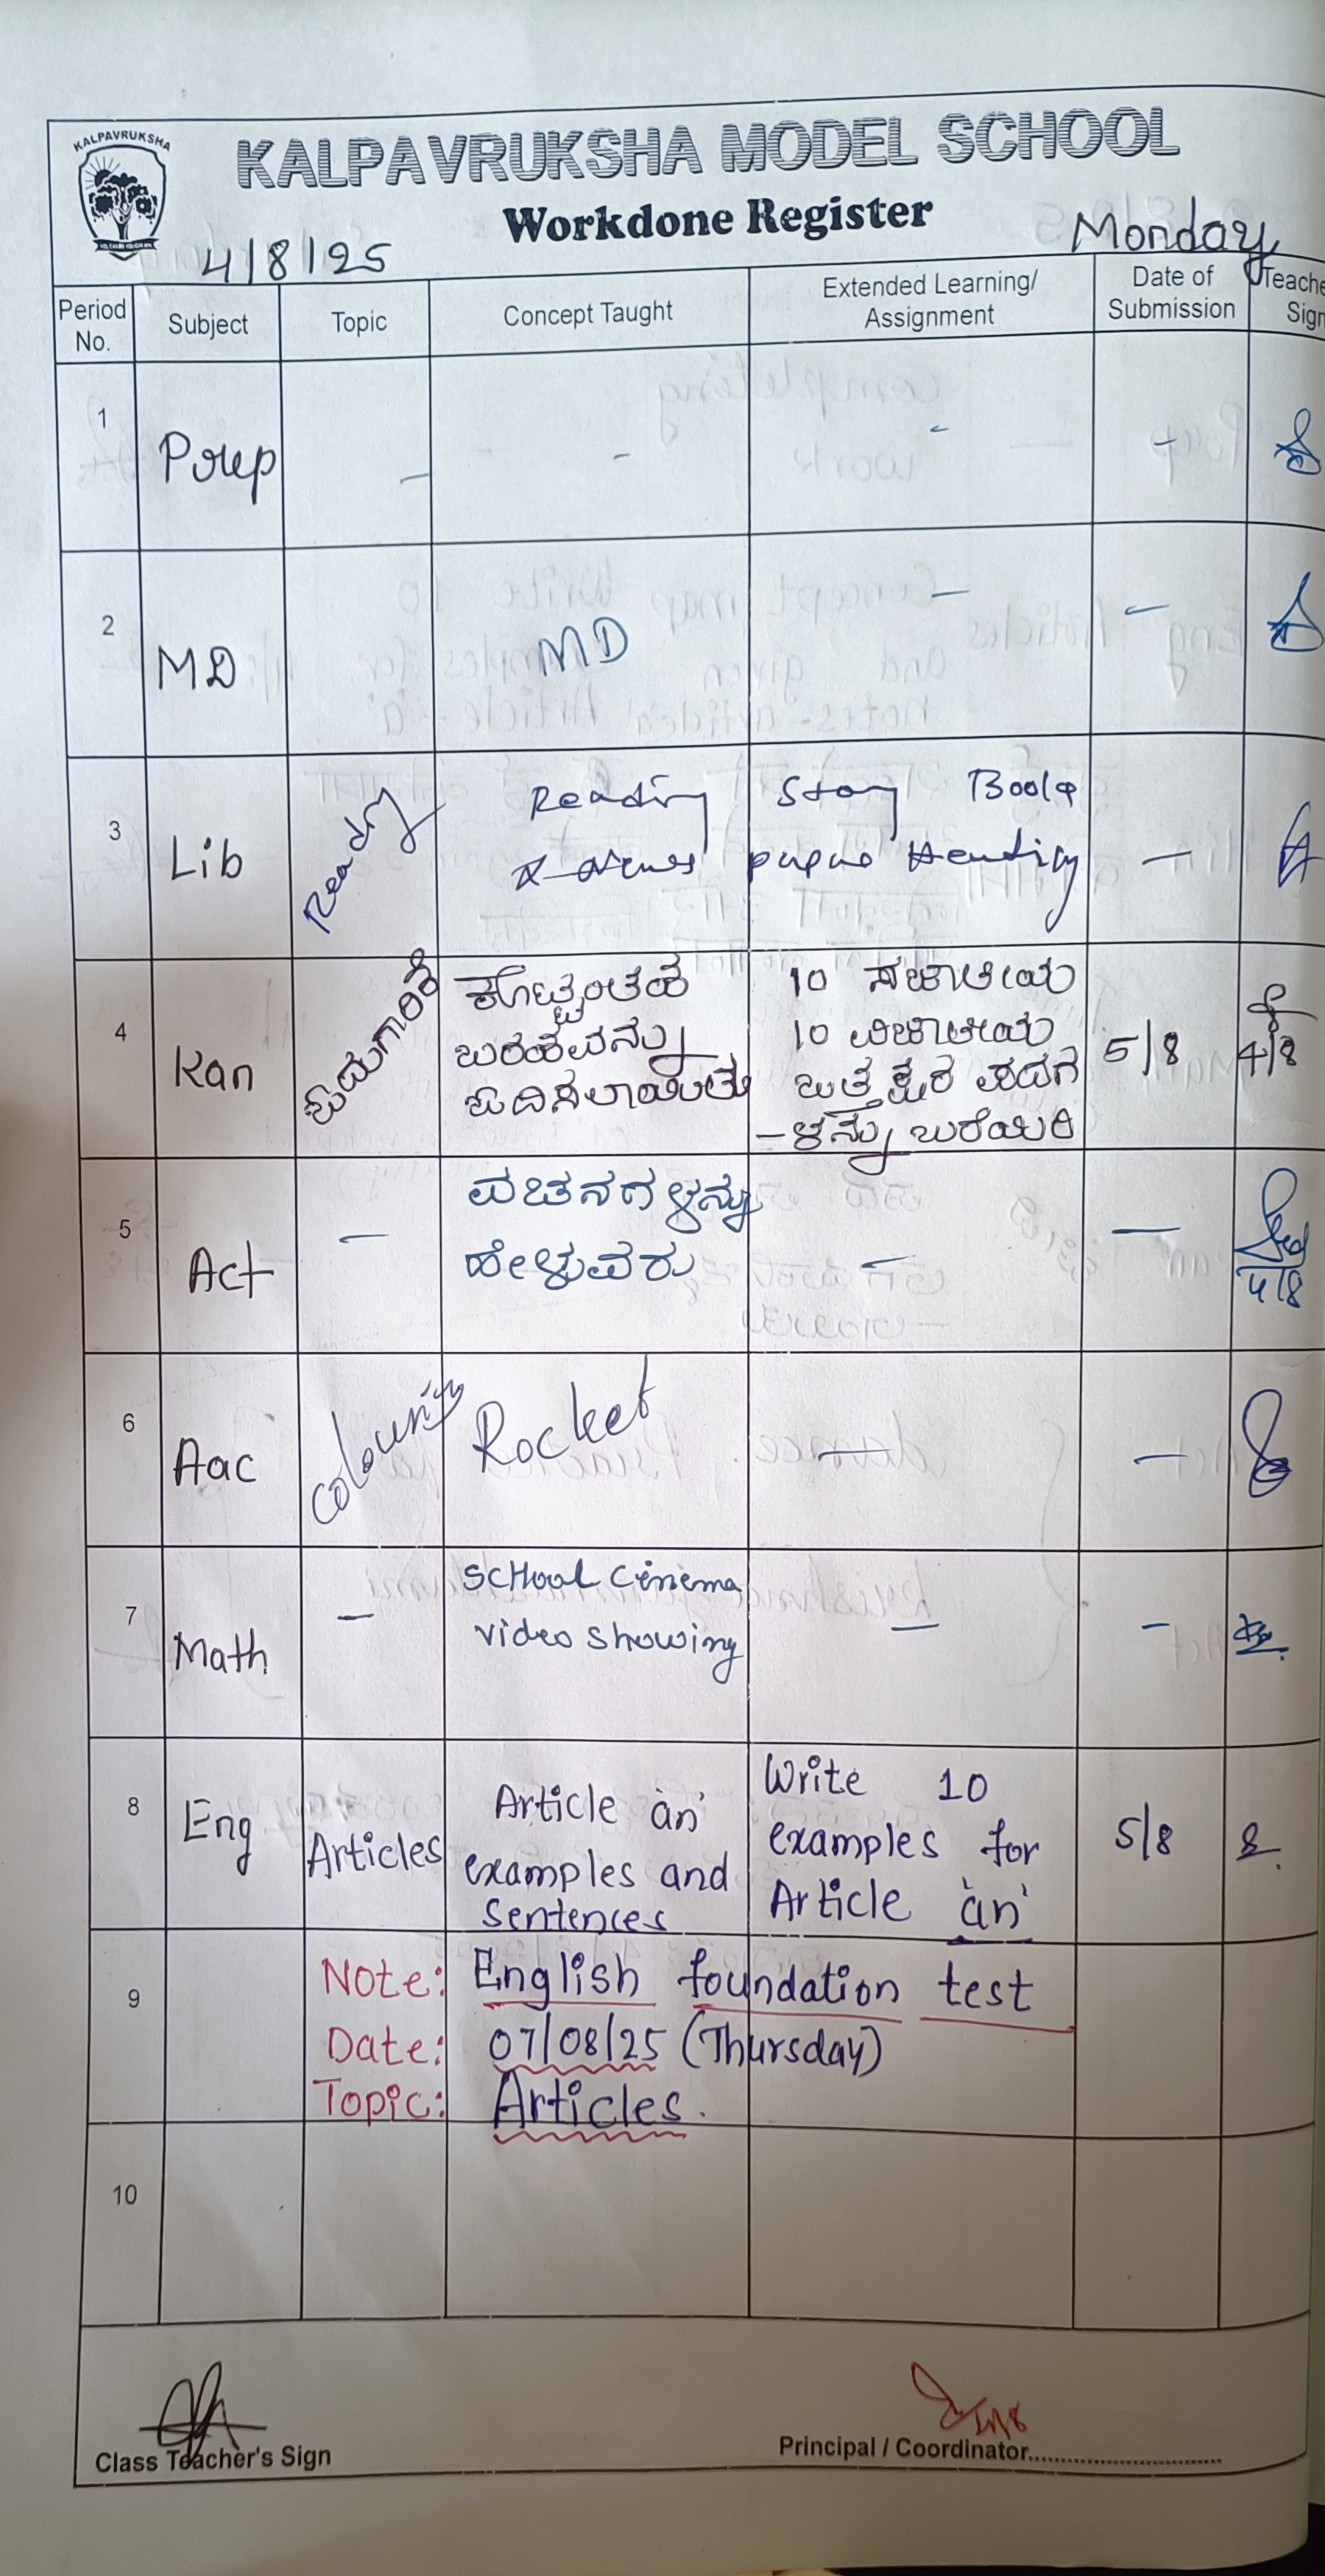 KALPAVRUKSHA
KALPAVRUKSHA MODEL SCHOOL
Workdone Register
4/8/25
Monday
Period No.
Subject
Topic
Concept Taught
Extended Learning/
Assignment
Date of
Submission
Sign
1
Prep
-
-
-
-
2
MD
MD
-
-
3
Lib
Reading
Reading Story Book
-
4
Kan
ಓದುಗಾರಿಕೆ
ಕೊಟ್ಟಂತಹ
ಬರಹವನ್ನು
ಓದಿಸಲಾಯಿತು
10 ಸಜಾತೀಯ
10 ವಿಜಾತೀಯ
ಒತ್ತಕ್ಷರ ಪದಗ
-ಳನ್ನು ಬರೆಯಿರಿ
5/8
4/8
5
Act
-
ವಚನಗಳನ್ನು
ಹೇಳುವರು
-
-
4/8
6
Aac
Colouring
Rocket
-
-
7
Math
-
SCHool Cinema
video showing
-
-
8
Eng
Articles
Article 'an'
examples and
Sentences
Write 10
examples for
Article 'an'
5/8
9
Note: English foundation test
Date: 07/08/25 (Thursday)
Topic: Articles.
10
Class Teacher's Sign
Principal / Coordinator